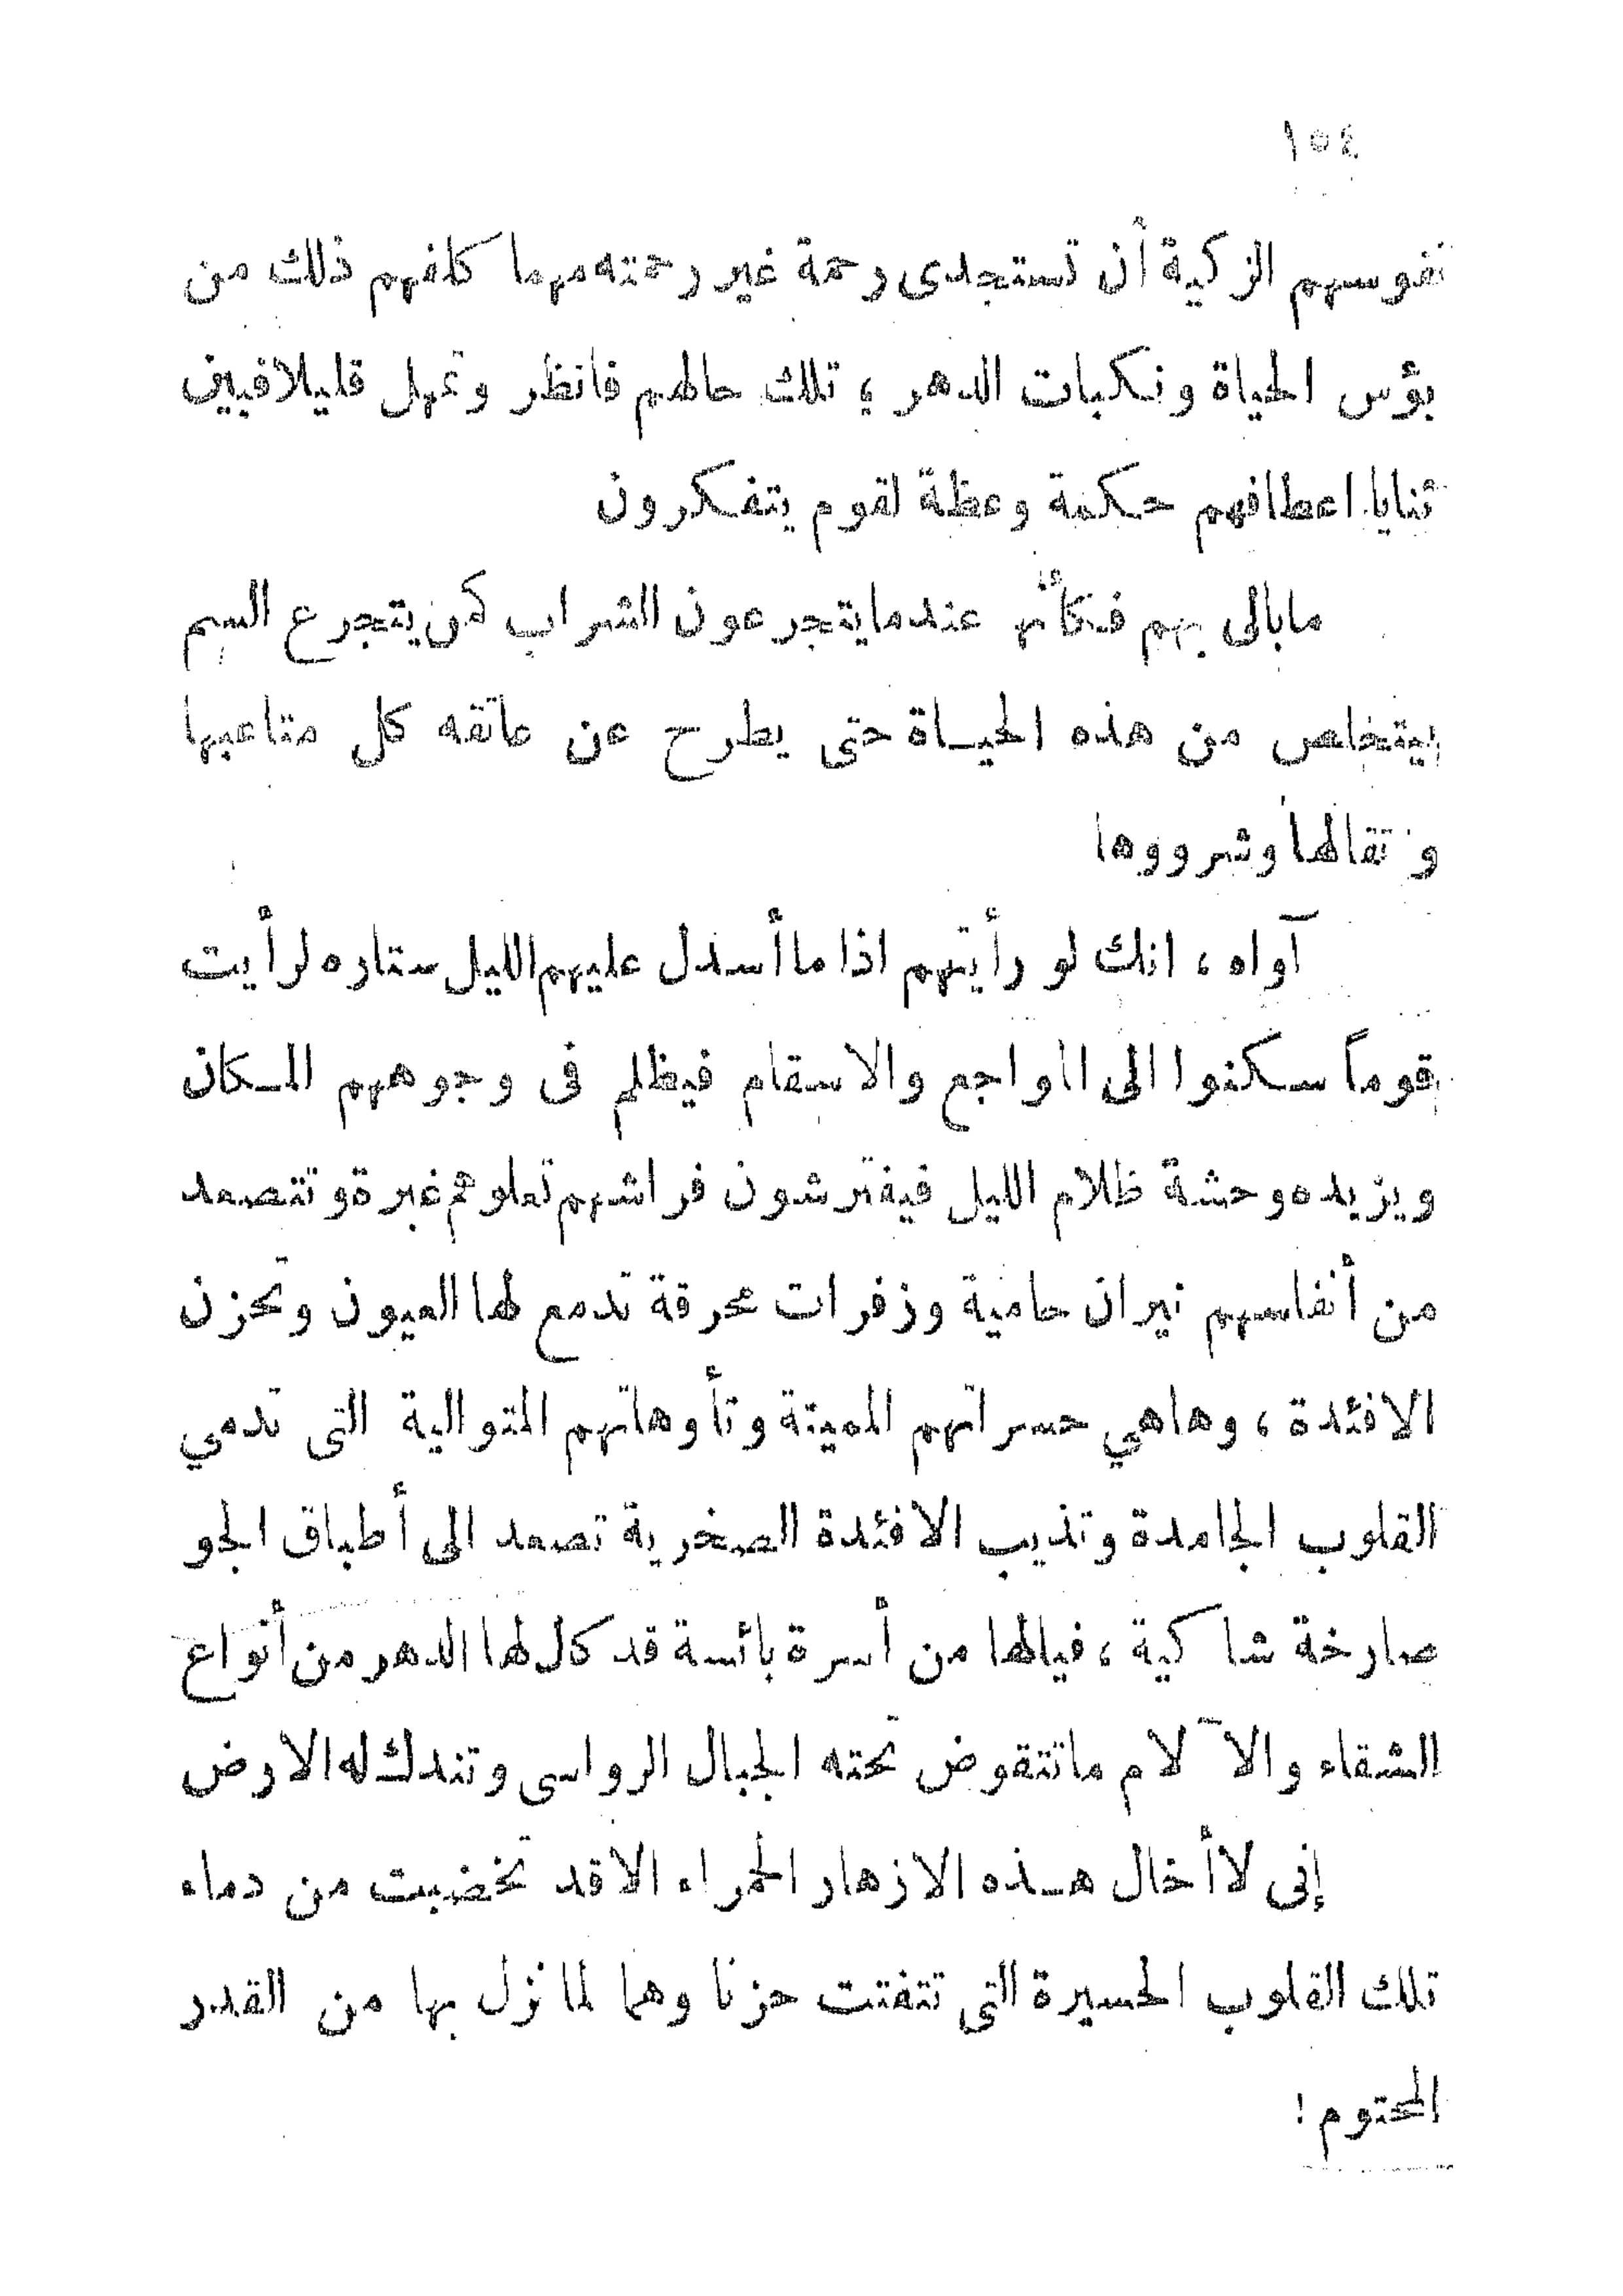 ١٥٤
نفوسهم الزكية أن تستجدى رحمة غير رحمته مهما كلفهم ذلك من
بؤس الحياة ونكبات الدهر ؛ تلك حالهم فانظر وتمهل قليلا فبين
ثنايا اعطافهم حكمة وعظة لقوم يتفكرون
مابالى بهم فكأنما عندما يتجرعون الشراب كمن يتجرع السم
ليتخلص من هذه الحياة حتى يطرح عن عاتقه كل متاعبها
وثقالها وشرووها
آواه ، انك لو رأيتهم اذا ما أسدل عليهم الليل ستاره لرأيت
قوماً سكنوا الى المواجع والاسقام فيظلم فى وجوههم المكان
ويزيده وحشة ظلام الليل فيفترشون فراشهم تعلوهم غبرة وتتصعد
من أنفاسهم نيران حامية وزفرات محرقة تدمع لها العيون وتحزن
الافئدة ، وهاهي حسراتهم المميتة وتأوهاتهم المتوالية التى تدمي
القلوب الجامدة وتذيب الافئدة الصخرية تصعد الى أطباق الجو
صارخة شاكية ، فيالها من أسرة بائسة قد كال لها الدهر من أنواع
الشقاء والآلام ماتتقوض تحته الجبال الرواسى وتندك له الارض
إنى لا أخال هذه الازهار الحمراء الا قد تخضبت من دماء
تلك القلوب الحسيرة التى تتفتت حزنا وهما لما نزل بها من القدر
المحتوم !